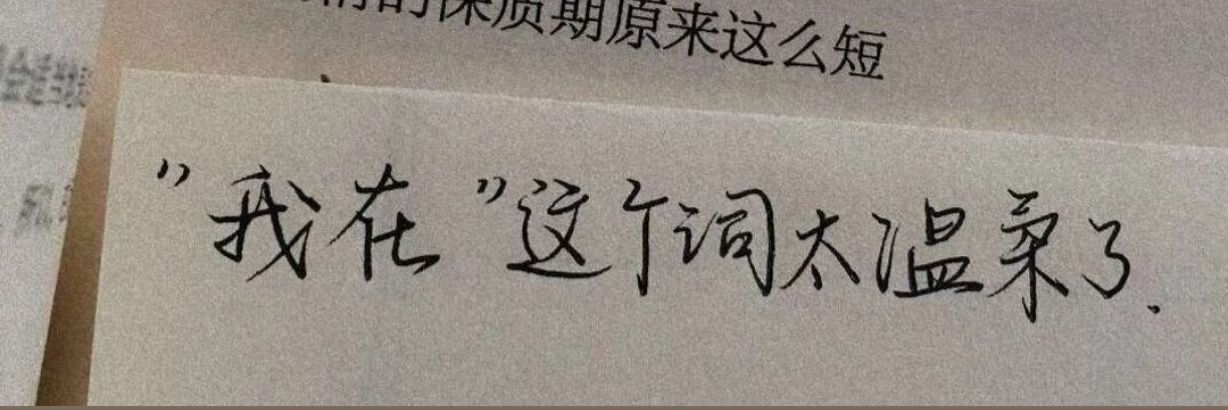 的保质期原来这么短
"我在"这个词太温柔了.